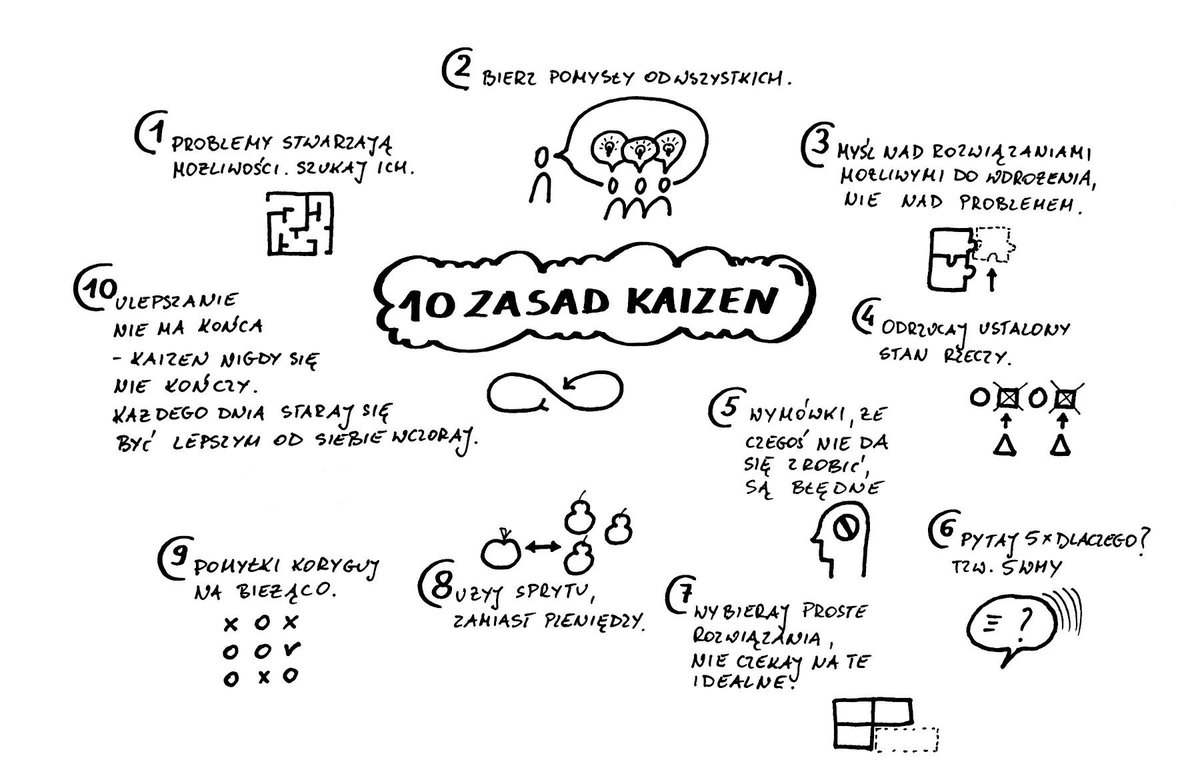 10 ZASAD KAIZEN
1 PROBLEMY STWARZAJĄ
MOŻLIWOŚCI. SZUKAJ ICH.
2 BIERZ POMYSŁY OD WSZYSTKICH.
3 MYŚL NAD ROZWIĄZANIAMI
MOŻLIWYMI DO WDROŻENIA,
NIE NAD PROBLEMEM.
4 ODRZUCAJ USTALONY
STAN RZECZY.
5 WYMÓWKI, ŻE
CZEGOŚ NIE DA
SIĘ ZROBIĆ,
SĄ BŁĘDNE
6 PYTAJ 5 x DLACZEGO?
TZW. 5WHY
?
7 WYBIERAJ PROSTE
ROZWIĄZANIA,
NIE CZEKAJ NA TE
IDEALNE.
8 UŻYJ SPRYTU,
ZAMIAST PIENIĘDZY.
9 POMYŁKI KORYGUJ
NA BIEŻĄCO.
x o x
o o v
o x o
10 ULEPSZANIE
NIE MA KOŃCA
- KAIZEN NIGDY SIĘ
NIE KOŃCZY.
KAŻDEGO DNIA STARAJ SIĘ
BYĆ LEPSZYM OD SIEBIE WCZORAJ.